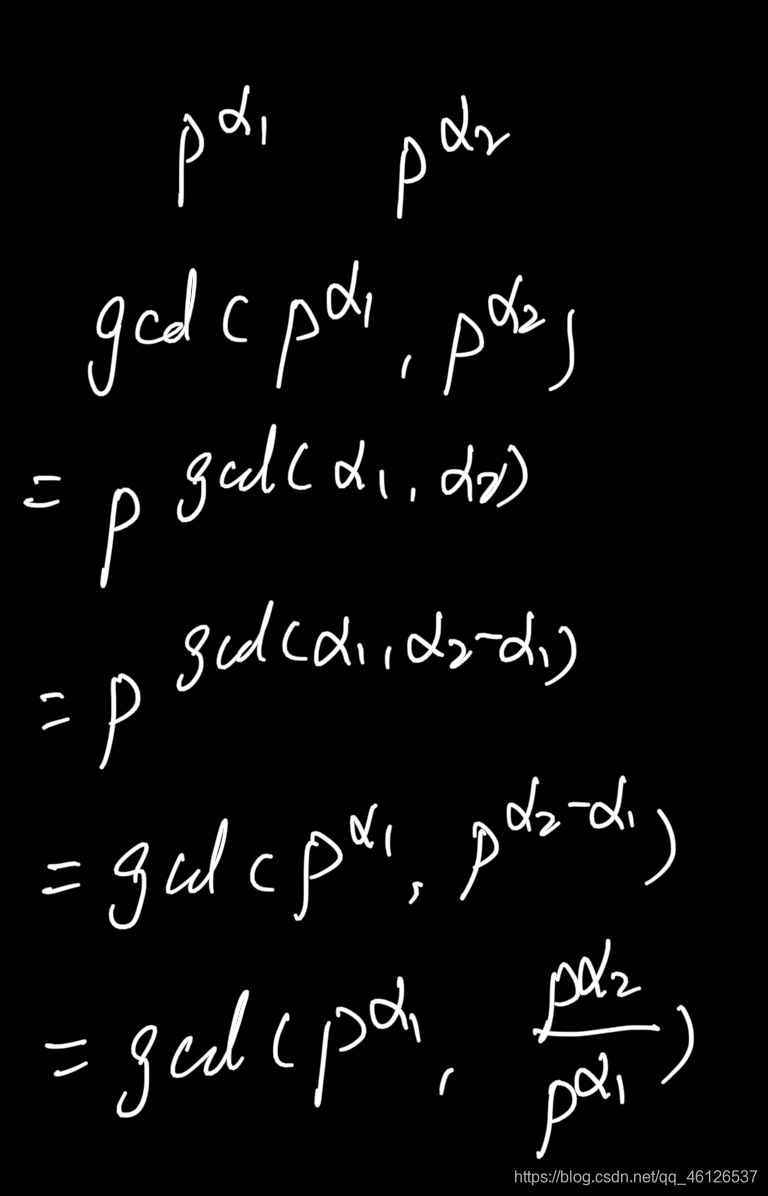 p^α₁ p^α₂
gcd(p^α₁, p^α₂)
= p^gcd(α₁, α₂)
= p^gcd(α₁, α₂-α₁)
= gcd(p^α₁, p^(α₂-α₁))
= gcd(p^α₁, p^α₂/p^α₁)
https://blog.csdn.net/qq_46126537